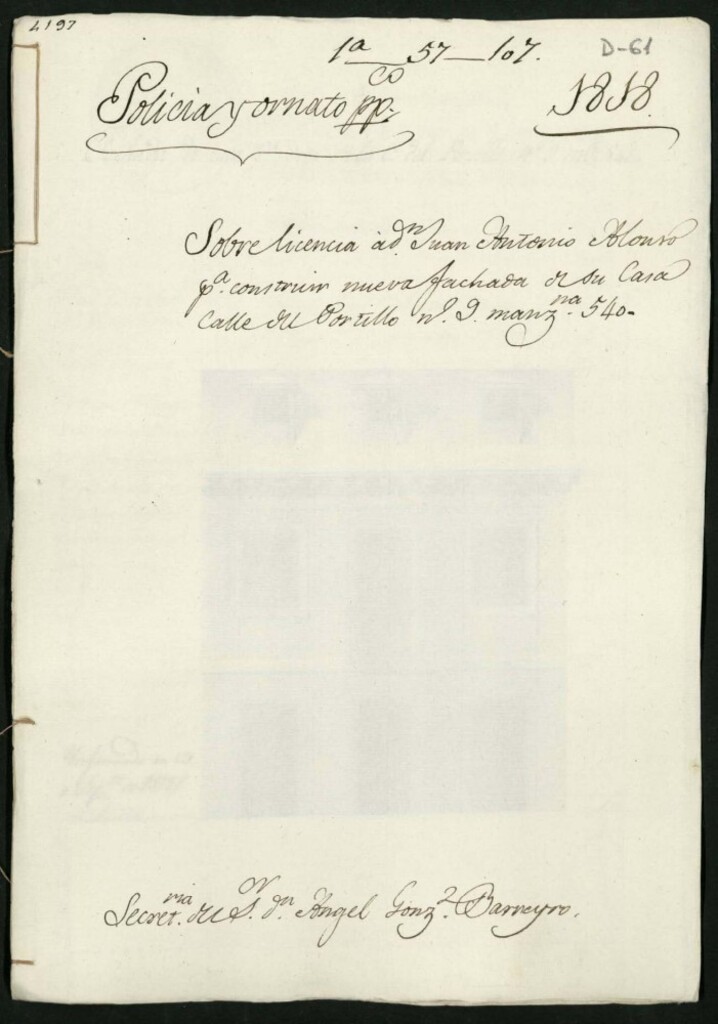 4197
1ª 57-107.
D-61
Policia y ornato pp.co
1818.
Sobre licencia à dn. Juan Antonio Alonso
pª. construir nueva fachada de su Casa
Calle del Portillo nº. 9. manzna. 540.
Secretria. del Sor. dn. Angel Gonzz. Barreyro.